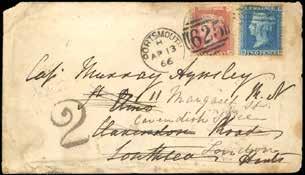 PORTSMOUTH
H
AP 13
66
625
TWO PENCE
Cap. Murray Aynsley
St Elmo 11 Margaret St. R.N
Cavendish Place
2
Clarendon Road
Southsea London
Hants